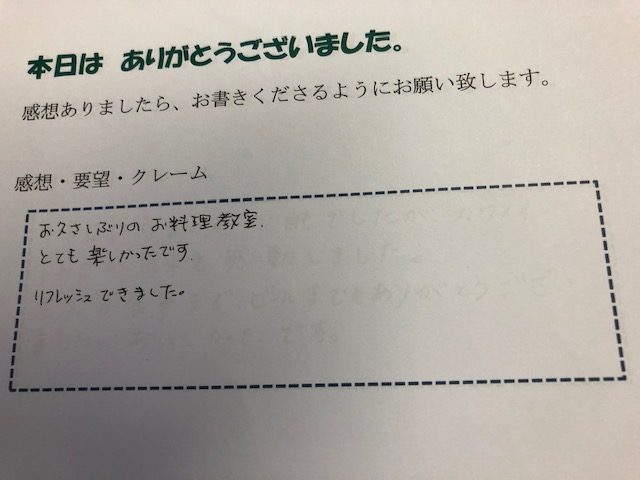 本日は ありがとうございました。
感想ありましたら、お書きくださるようにお願い致します。
感想・要望・クレーム
お久さしぶりの お料理教室.
とても 楽しかったです.
リフレッシュ できました。